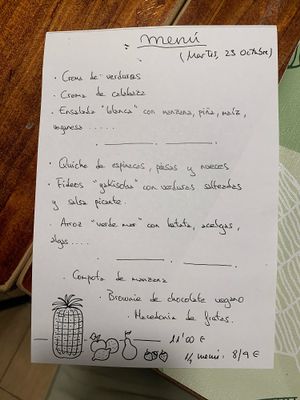 : menú :
(Martes, 23 Octubre)
· Crema de verduras
· Crema de calabaza
· Ensalada "blanca" con manzana, piña, maíz,
veganesa .....
· Quiche de espinacas, pasas y nueces
· Fideos "yakisoba" con verduras salteadas
y salsa picante.
· Arroz "verde mar" con batata, acelgas,
algas....
· Compota de manzana
· Brownie de chocolate vegano
· Macedonia de frutas.
11'00 €
1/2 menú: 8/9 €